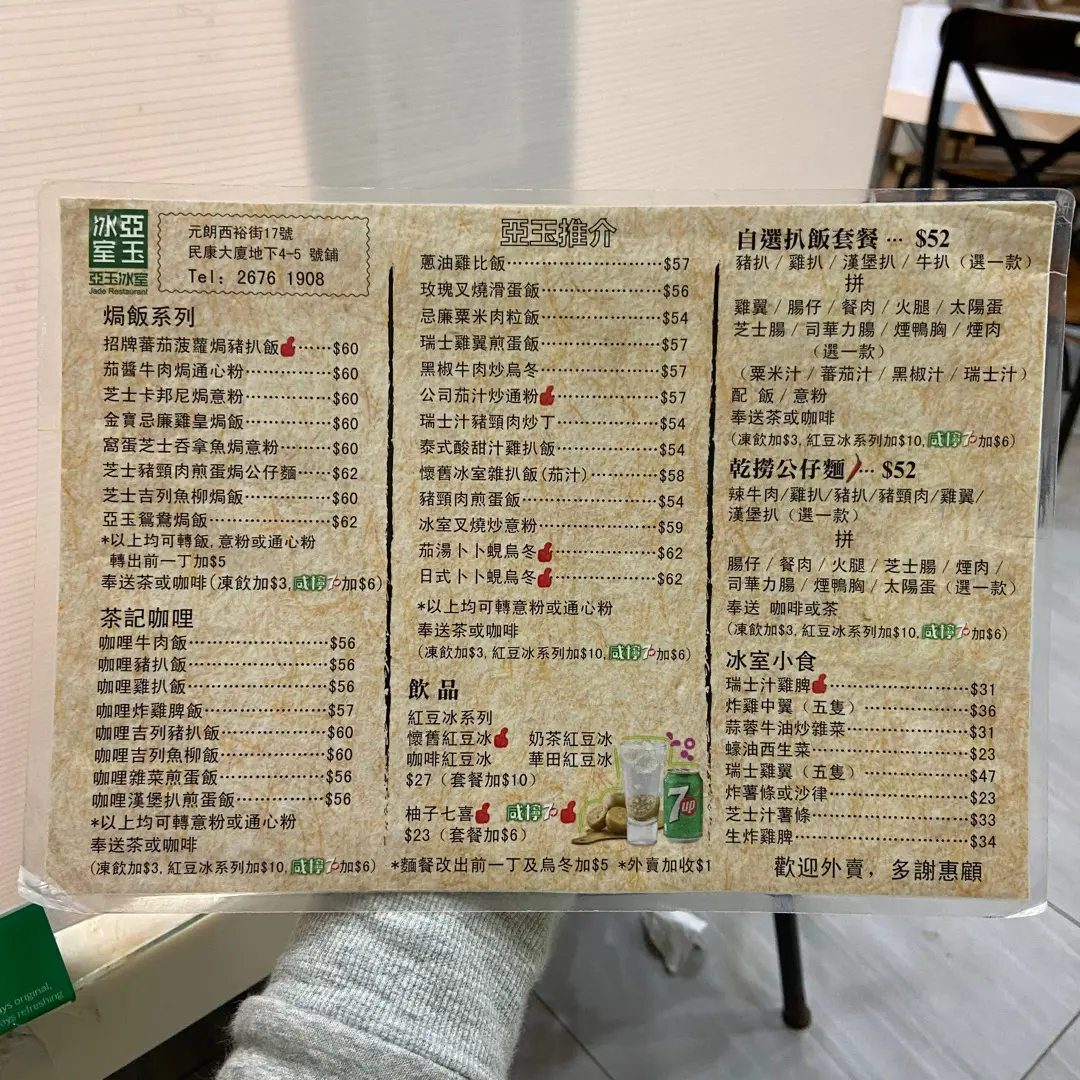 亞玉
冰室
亞玉冰室
Jade Restaurant
元朗西裕街17號
民康大廈地下4-5 號鋪
Tel: 2676 1908
焗飯系列
招牌蕃茄菠蘿焗豬扒飯……$60
茄醬牛肉焗通心粉……$60
芝士卡邦尼焗意粉……$60
金寶忌廉雞皇焗飯……$60
窩蛋芝士吞拿魚焗意粉……$60
芝士豬頸肉煎蛋焗公仔麵……$62
芝士吉列魚柳焗飯……$60
亞玉鴛鴦焗飯……$62
*以上均可轉飯,意粉或通心粉
轉出前一丁加$5
奉送茶或咖啡(凍飲加$3,咸檸7加$6)
茶記咖哩
咖哩牛肉飯……$56
咖哩豬扒飯……$56
咖哩雞扒飯……$56
咖哩炸雞脾飯……$57
咖哩吉列豬扒飯……$60
咖哩吉列魚柳飯……$60
咖哩雜菜煎蛋飯……$56
咖哩漢堡扒煎蛋飯……$56
*以上均可轉意粉或通心粉
奉送茶或咖啡
(凍飲加$3,紅豆冰系列加$10,咸檸7加$6)
亞玉推介
蔥油雞比飯……$57
玫瑰叉燒滑蛋飯……$56
忌廉粟米肉粒飯……$54
瑞士雞翼煎蛋飯……$57
黑椒牛肉炒烏冬……$57
公司茄汁炒通粉……$57
瑞士汁豬頸肉炒丁……$54
泰式酸甜汁雞扒飯……$54
懷舊冰室雜扒飯(茄汁)……$58
豬頸肉煎蛋飯……$54
冰室叉燒炒意粉……$59
茄湯卜卜蜆烏冬……$62
日式卜卜蜆烏冬……$62
*以上均可轉意粉或通心粉
奉送茶或咖啡
(凍飲加$3,紅豆冰系列加$10,咸檸7加$6)
飲品
紅豆冰系列
懷舊紅豆冰 奶茶紅豆冰
咖啡紅豆冰 華田紅豆冰
$27 (套餐加$10)
柚子七喜 咸檸7
$23 (套餐加$6)
7up
*麵餐改出前一丁及烏冬加$5 *外賣加收$1
自選扒飯套餐… $52
豬扒/雞扒/漢堡扒/牛扒(選一款)
拼
雞翼/腸仔/餐肉/火腿/太陽蛋
芝士腸/司華力腸/煙鴨胸/煙肉
(選一款)
(粟米汁/蕃茄汁/黑椒汁/瑞士汁)
配 飯/意粉
奉送茶或咖啡
(凍飲加$3,紅豆冰系列加$10,咸檸7加$6)
乾撈公仔麵… $52
辣牛肉/雞扒/豬扒/豬頸肉/雞翼/
漢堡扒(選一款)
拼
腸仔/餐肉/火腿/芝士腸/煙肉/
司華力腸/煙鴨胸/太陽蛋(選一款)
奉送 咖啡或茶
(凍飲加$3,紅豆冰系列加$10,咸檸7加$6)
冰室小食
瑞士汁雞脾……$31
炸雞中翼(五隻)……$36
蒜蓉牛油炒雜菜……$31
蠔油西生菜……$23
瑞士雞翼(五隻)……$47
炸薯條或沙律……$23
芝士汁薯條……$33
生炸雞脾……$34
歡迎外賣, 多謝惠顧
ys original,
ys refreshing